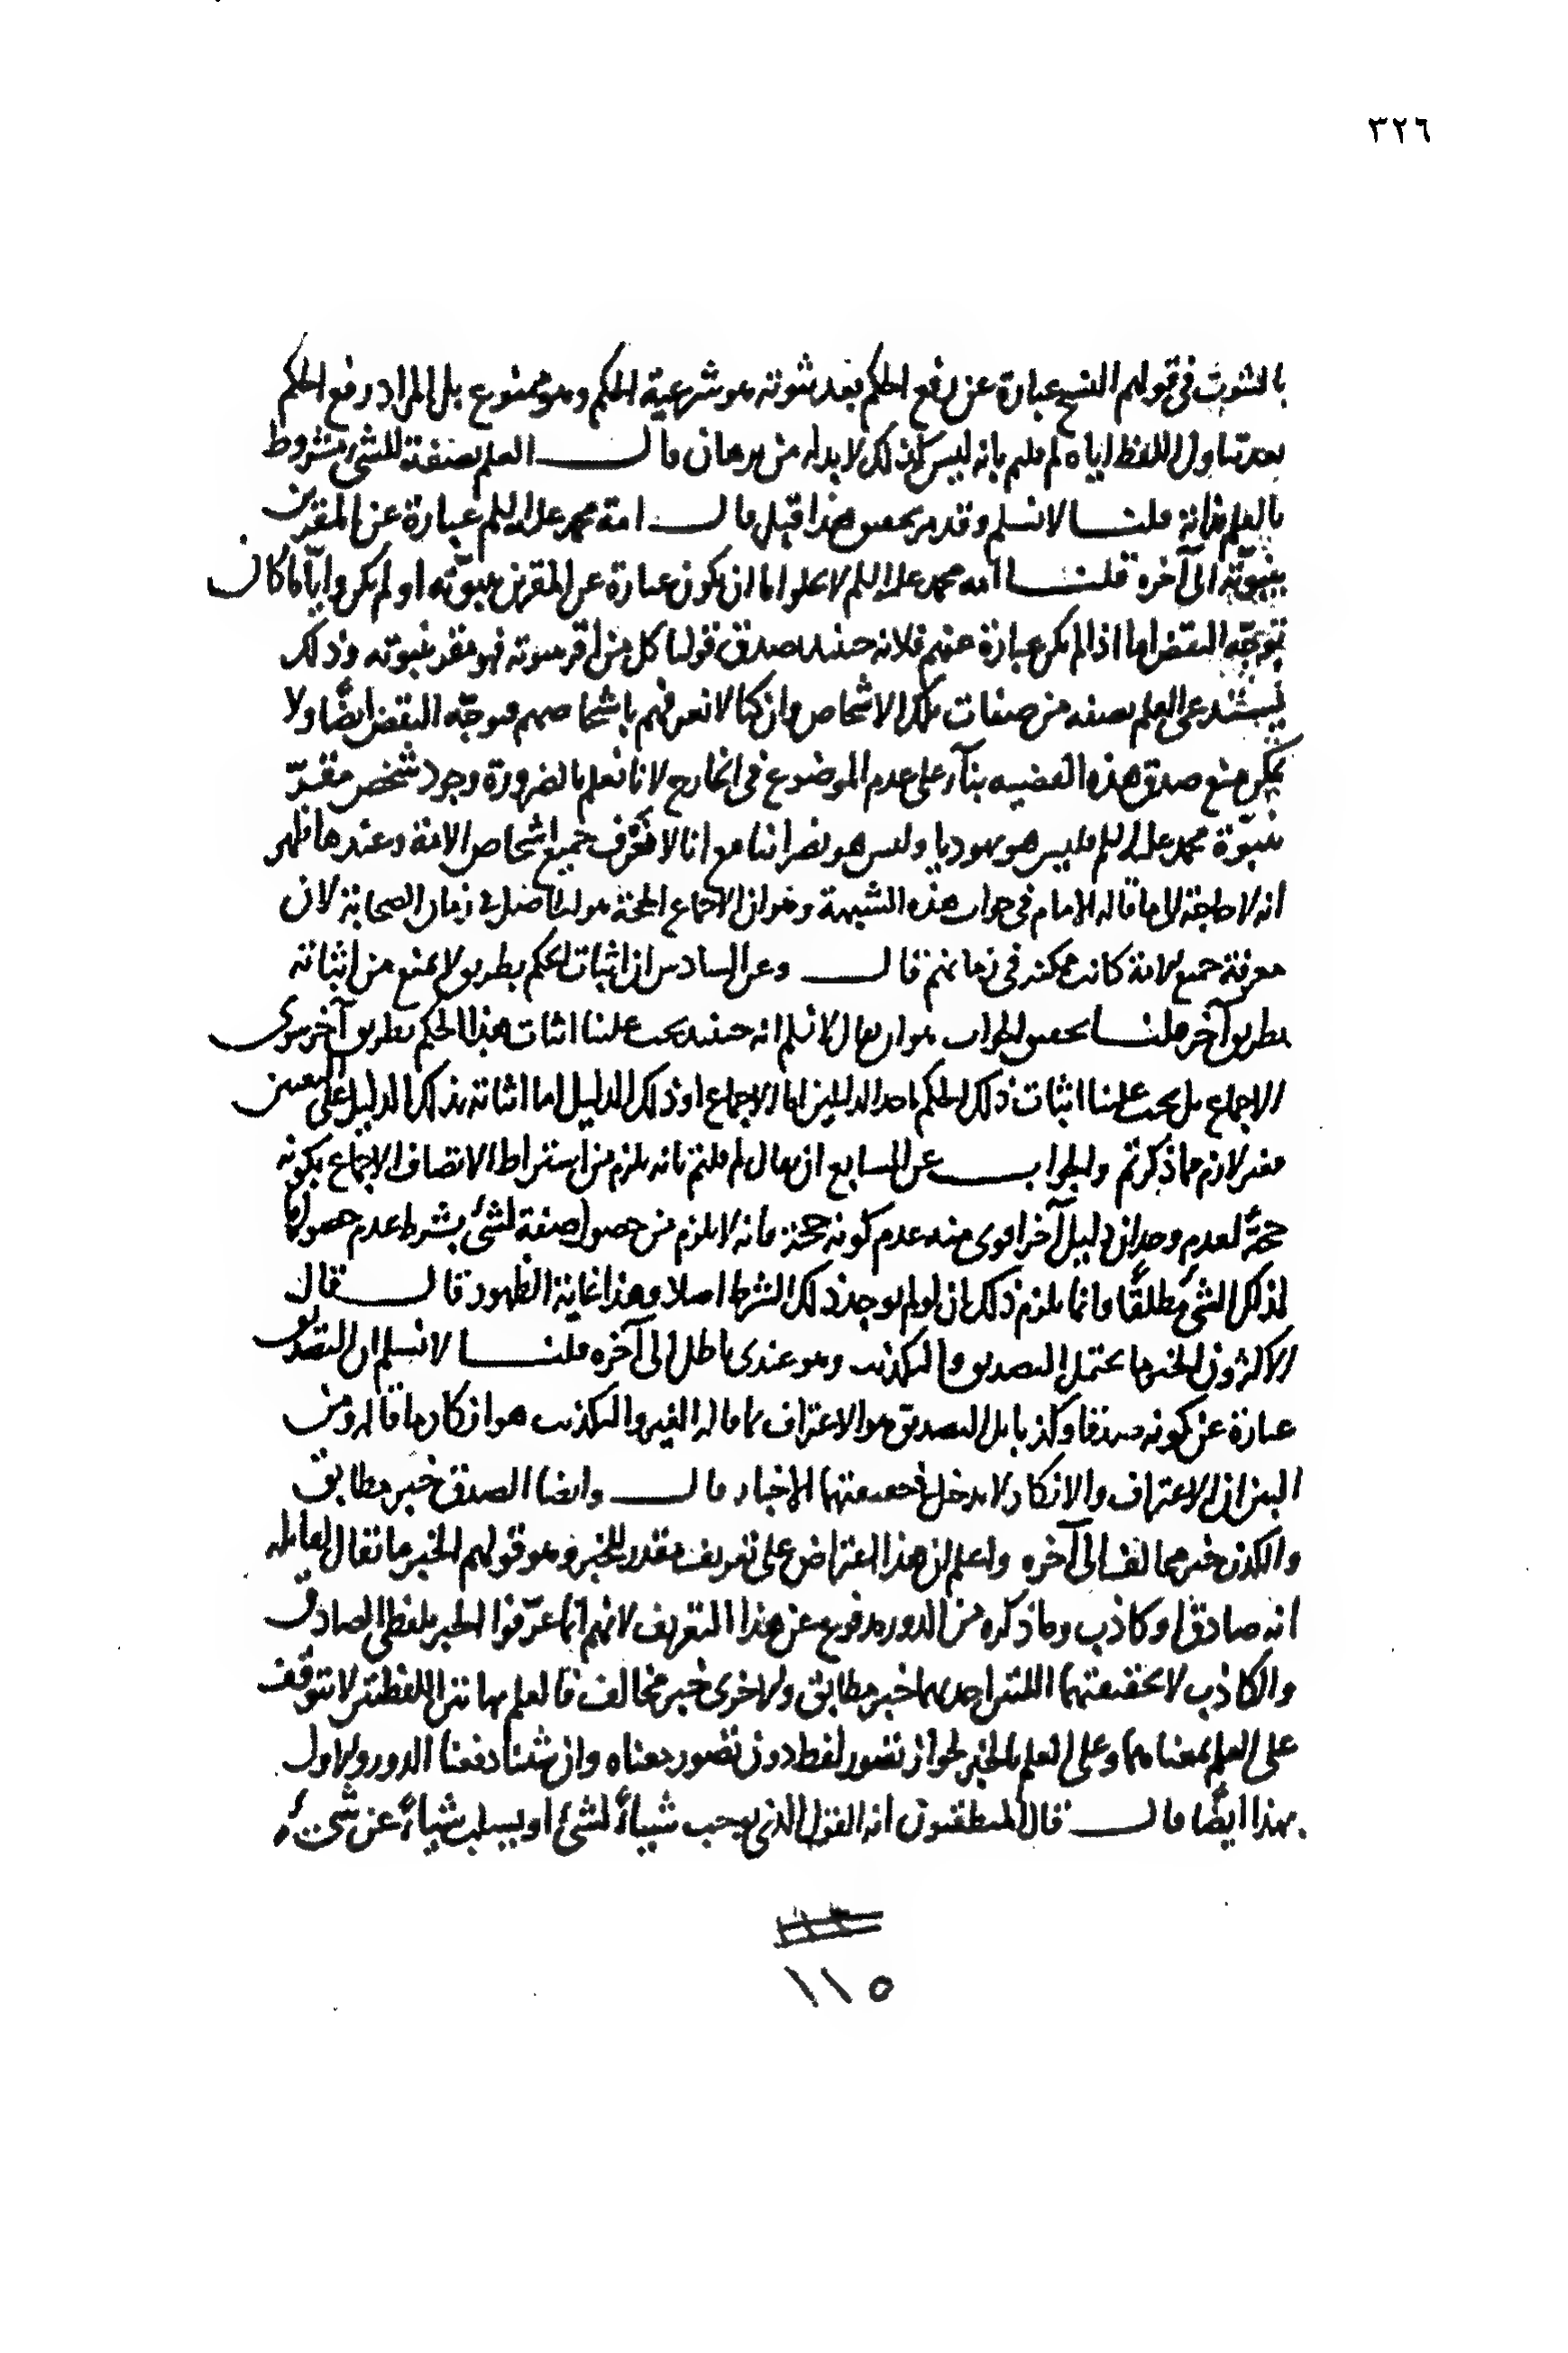 ٣٢٦
بالثبوت فى قولهم النسخ عبارة عن رفع الحكم بعد ثبوته هو شرعية الحكم وهو ممنوع بل المراد رفع الحكم
بعد تناول اللفظ اياه لم قلتم بانه ليس كذلك لا بد له من برهان قال العلم بصفة للشئ مشروط
بالعلم بذاته قلنا لا نسلم وقد مر تحقيق هذا قبل قال امة محمد عليه السلم عبارة عن المقرين
بنبوّته الى آخره قلنا امة محمد عليه السلم لا يخلوا اما ان يكون عبارة عن المقرين بنبوّته او لم يكن وايّاما كان
توجّه النقض اما اذا لم يكن عبارة عنهم فلانه حينئذ صدق قولنا كل من اقر بنبوته فهو مقر بنبوته وذلك
يستند على العلم بصفه من صفات تلك الاشخاص وان كنا لا نعرفهم باشخاصهم فتوجّه النقض ايضًا ولا
يمكن منع صدق هذه القضيه بنآء على عدم الموضوع فى الخارج لانا نعلم بالضرورة وجود شخص مقرّ
بنبوّة محمد عليه السلم فليس هو يهوديا وليس هو نصرانيا مع انا لا نعرف جميع اشخاص الامة وعند هذا ظهر
انه لا حاجة الى ما قاله الامام فى جواب هذه الشبهة وهو ان الاجماع الحجة هو الحاصل فى زمان الصحابة لان
معرفة جميع الامة كانت ممكنه فى زمانهم قال وعن السادس ان اثبات الحكم بطريق لا يمنع من اثباته
بطريق آخر قلنا تحقيق الجواب هو ان يقال لا نسلم انه حينئذ يجب علينا اثبات هذا الحكم بطريق آخر سوى
الاجماع بل يجب علينا اثبات ذلك الحكم باحد الدليلين اما الاجماع او ذلك الدليل اما اثباته بذلك الدليل على التعيين
فغير لازم مما ذكرتم والجواب عن السابع ان يقال لم قلتم بانه يلزم من اشتراط الاتصاف الاجماع بكونه
حجّة لعدم وجدان دليل آخر اقوى منه عدم كونه حجة فانه لا يلزم من حصول صفة لشئ بشرط عدم حصولها
لذلك الشئ مطلقًا وانما يلزم ذلك ان لو لم يوجد ذلك الشرط اصلا وهذا غاية الظهور قال قال
الاكثرون الخبر ما يحتمل التصديق والتكذيب وهو عندى باطل الى آخره قلنا لا نسلم ان التصديق
عبارة عن كونه صدقا وكذبا بل التصديق هو الاعتراف بما قاله الغير والتكذيب هو انكار ما قاله ومن
البين ان الاعتراف والانكار لا يدخل فى حقيقتهما الاخبار قال وايضا الصدق خبر مطابق
والكذب خبر مخالف الى آخره واعلم ان هذا اعتراض على تعريف مقدر للخبر وهو قولهم الخبر ما يقال لقايله
انه صادق او كاذب وما ذكره من الدور مدفوع عن هذا التعريف لانهم انما عرّفوا الخبر بلفظى الصادق
والكاذب لا بحقيقتهما اللتين احديهما خبر مطابق والاخرى خبر مخالف فالعلم بهاتين اللفظتين لا يتوقف
على العلم بمعناهما وعلى العلم بالخبر لجواز تصور لفظ دون تصور معناه وان شئنا دفعنا الدور الاول
بهذا ايضًا قال قال المنطقيون انه القول الذى يوجب شيأً لشئ او يسلب شيأً عن شئ
١١٥